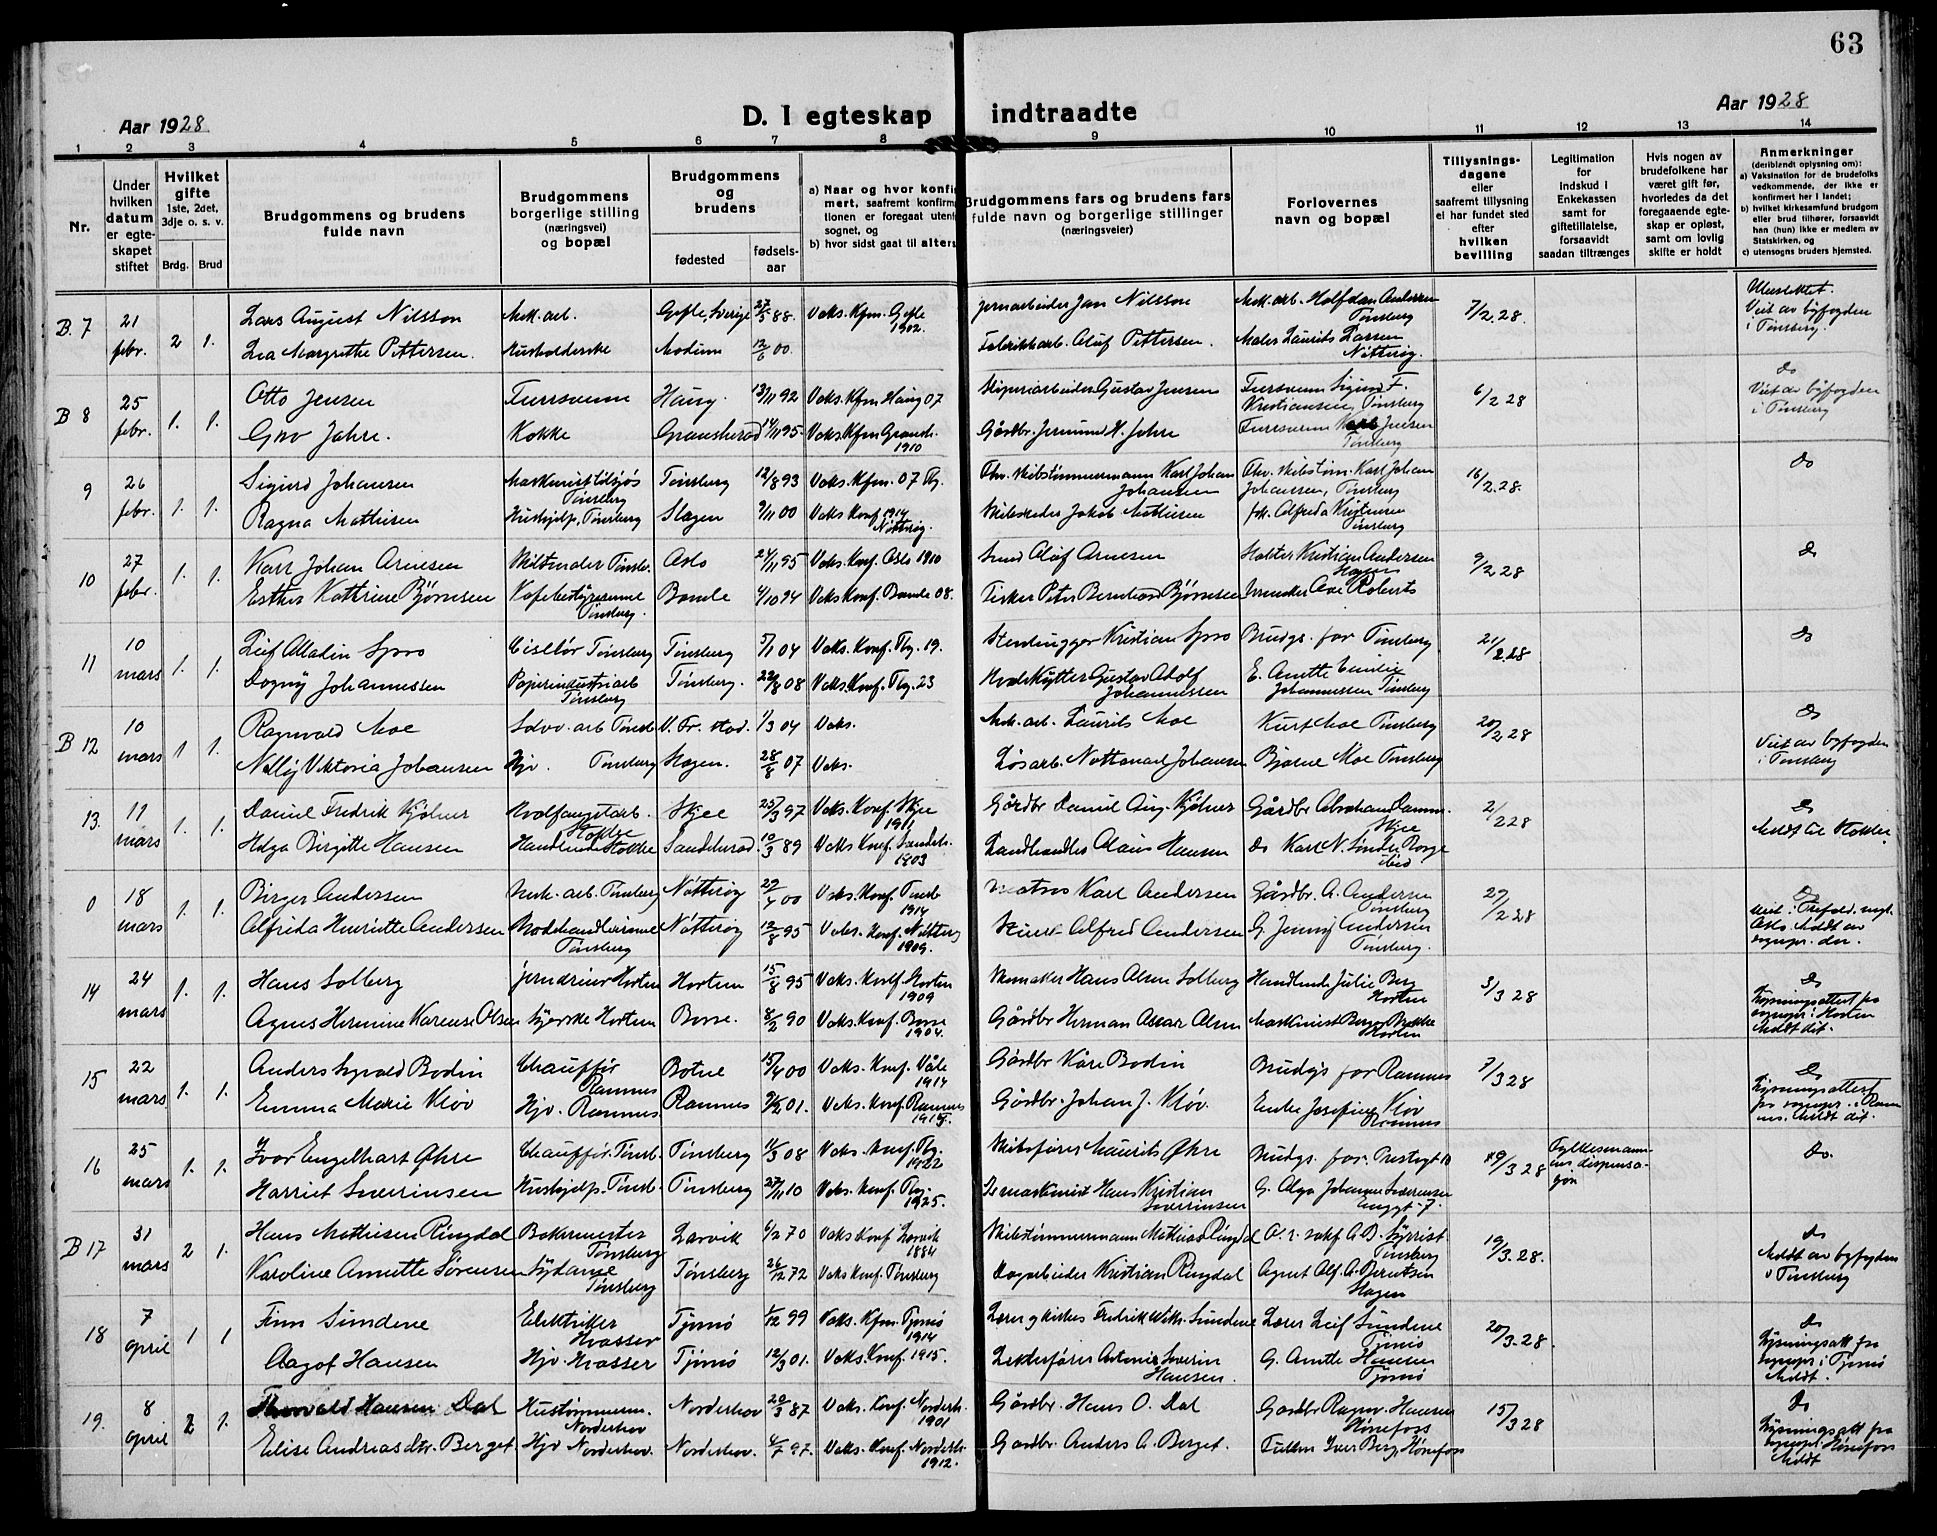 63
Aar 1928
D. I egteskap indtraadte
Aar 1928
1 2 3 4 5 6 7 8 9 10 11 12 13 14
Nr.
Under hvilken datum er egteskapet stiftet
Hvilket gifte
1ste, 2det, 3dje o. s. v.
Brdg. Brud
Brudgommens og brudens fulde navn
Brudgommens borgerlige stilling (næringsvei) og bopæl
Brudgommens og brudens
fødested
fødsels-aar
a) Naar og hvor konfirmert, saafremt konfirmationen er foregaat utenfor sognet, og
b) hvor sidst gaat til alters
Brudgommens fars og brudens fars fulde navn og borgerlige stillinger (næringsveier)
Forlovernes navn og bopæl
Tillysnings-dagene eller saafremt tillysning ei har fundet sted efter hvilken bevilling
Legitimation for Indskud i Enkekassen samt for giftetillatelse, forsaavidt saadan tiltrænges
Hvis nogen av brudefolkene har været gift før, hvorledes da det foregaaende egteskap er opløst, samt om lovlig skifte er holdt
Anmerkninger
(deriblandt oplysning om):
a) Vaksination for de brudefolks vedkommende, der ikke er konfirmert her i landet;
b) hvilket kirkesamfund brudgom eller brud tilhører, forsaavidt han (hun) ikke er medlem av Statskirken, og
c) utensogns bruders hjemsted.
B. 7 21 febr. 2 1.
Lars August Nilsson Mek. arb. Gefle, Sverige 27/5 88. Vaks. Kfm. Gefle 1902. Jernarbeider Jan Nilsson Mek. arb. Halfdan Andersen Tønsberg 7/2.28. Ubeslektet. Viet av byfogden i Tønsberg.
Lea Margrethe Pettersen. Husholderske Modum 12/6 00. Fabrikkarb. Oluf Pettersen. Maler Laurits Larsen Nøtterøy.
B 8 25 febr. 1. 1.
Otto Jensen Feiersvenn Haug. 13/11 92 Vaks. Kfm Haug 07 Gustav Jensen Feiersvenn Sigurd F. Kristiansen, Tønsberg 6/2 28 do Viet av byfogden i Tønsberg
Gro Jahre. Kokke Gransherad 14/11 95. Vaks. Kfm Gransh. 1910 Gårdbr. Jermund H. Jahre Feiersvenn Karl Jensen Tønsberg
9 26 febr. 1. 1.
Sigurd Johansen Maskinist tilsjøs Tønsberg Tønsberg 12/8 93 Vaks. Kfm. 07 Tbg. Fhv. Skibstømmermann Karl Johan Johansen Fhv. Skibstøm. Karl Johan Johansen, Tønsberg 16/2.28. do
Ragna Mathisen Hushjelp, Tønsberg Slagen 9/11 00 Vaks Konf 1914 Nøtterøy. Skibsreder Jakob Mathisen frk. Alfreda Kristensen Tønsberg
10 27 febr. 1. 1.
Karl Johan Arnesen Skibsmaler Tønsb. Oslo 24/11 95 Vaks. Konf. Oslo 1910 Smed Olaf Arnesen Kristian Andersen 9/2 28 do
Esther Kathrine Bjørnesen Kafebestyrerinne Tønsberg. Bamle 4/10 94 Vaks Konf. Bamle 08. Fisker Peter Bernhard Bjørnesen
11 10 mars 1. 1.
Leif Aladin Spro Ciselør Tønsberg Tønsberg 5/1 04 Vaks. Konf. Tbg. 19. Stenhugger Kristian Spro Brudgs. far Tønsberg 21/2.28 do
Dagny Johannessen Papirindustriarb Tønsberg Tønsberg. 22/8 08 Vaks. Konf. Tbg. 23 Hvalskytter Gustav Adolf Johannessen E. Anette Emilie Johannessen Tønsberg
B 12 10 mars 1 1.
Ragnvald Moe Tønsb. V. Fr. stad. 1/3 04 Vaks. Mek. arb. Laurits Moe Kurt Moe Tønsberg 20/2 28 do Viet av byfogden i Tønsberg
Nelly Viktoria Johansen Hjv. Tønsberg Slagen. 28/8 07 Vaks. Løsarb. Nathanael Johansen Bjarne Moe Tønsberg
13. 17 mars 1. 1.
Daniel Fredrik Kjølner Hvalfangstarb. Stokke Skjee 25/3 97 Vaks. Konf. Skjee 1911 Gårdbr Daniel Aug. Kjølner Gårdbr Abraham Skjee 2/2 28 do Meldt til Stokke.
Helga Birgitte Hansen Stokke Sandeherad 10/3 89 Vaks Konf. Sandeh. 1903 Landhandler Claus Hansen do Karl N. Søndre Borge ibid
0 18 mars 1. 1.
Birger Andersen Mek. arb. Tønsberg Nøtterøy 29/4 00 Vaks. Konf. Tønsb 1914 Matros Karl Andersen Gårdbr. A. Andersen Tønsberg 27/2 28 do
Alfrida Henriette Andersen Modehandlerinne Tønsberg Nøtterøy 12/8 95 Vaks. Konf. Nøtterøy 1909. Alfred Andersen G. Jenny Andersen Tønsberg.
14 24 mars 1. 1.
Hans Solberg Jerndreier Horten Horten 15/8 95 Vaks. Konf. Horten 1909 Skomaker Hans Olsen Solberg Handlende Julie Berg Horten 3/3 28 do Lysningsattest fra sognepr. i Horten Meldt dit.
Agnes Hermine Karense Olsen Syerske Horten Borre. 8/2 90 Vaks. Konf. Borre 1904. Gårdbr Herman Oskar Olsen Maskinist Horten
15 22 mars 1. 1.
Anders Sigvald Bodin Chauffør Ramnes Botne 15/4 00 Vaks. Konf. Våle 1914 Gårdbr Kåre Bodin Brudgs far Ramnes 7/3 28 do Lysningsattest fra sognepr. i Ramnes. Meldt dit.
Emma Marie Kløv Hjv. Ramnes Ramnes 01. Vaks. Konf. Ramnes 1915. Gårdbr. Johan J. Kløv. Enke Josefine Kløv Ramnes
16 25 mars 1. 1.
Ivar Engelhart Øhre Chauffør. Tønsb. Tønsberg 11/3 08 Vaks. Konf. Tbg. 1922 Skibsfører Maurits Øhre Brudgs. far. Prestegt 10 19/3 28 Fylkesmannens dispensasjon do.
Harriet Severinsen Hushjelp. Tønsb. Tønsberg 27/11 10 Vaks. Konf. Tbg. 1925. maskinist Hans Kristian Severinsen G. Olga Johanne Severinsen Enggt. 7.
B 17 31 mars 2 1.
Hans Mathisen Ringdal Bakermester Tønsberg Larvik 6/2 70 Vaks Konf Larvik 1884 Skibstømmermann Mathias Ringdal O.r. sakf. Tønsberg 19/3.28. do Meldt av byfogden i Tønsberg
Karoline Annette Sørensen Sydame Tønsberg Tønsberg 26/12 72 Vaks Konf. Tønsberg Dagarbeider Kristian Ringdal Agent Alf. A. Berntsen Slagen
18 7 april 1 1
Finn Sundene Elektriker Hvasser Tjømø 1/12 99 Vaks. Kfm. Tjømø 1914 Lærer g kirkes. Fredrik Wilh. Sundene Lærer Leif Sundene Tjømø 20/3.28. do Lysningsatt fra sognepr. i Tjømø Meldt.
Aagot Hansen Hjv. Hvasser Tjømø 12/3 01. Vaks. Konf. 1915. Lekterfører Antonius Severin Hansen. G. Anette Hansen Tjømø
19. 8 april 2 1.
Thorvald Hansen Dal Hustømmerm. Norderhov Norderhov 20/3 87 Vaks. Konf. Norderh. 1901 Gårdbr. Hans O. Dal Gårdbr Ragnv. Hansen Hønefoss 15/3 28 do Lysningsatt fra sognepr. Hønefoss Meldt
Elise Andreasdtr. Berget Hjv Norderhov. Norderhov. 4/7 97. Vaks. Konf. Norderh. 1912. Gårdbr. Anders A. Berget. Iver Berg, Hønefoss